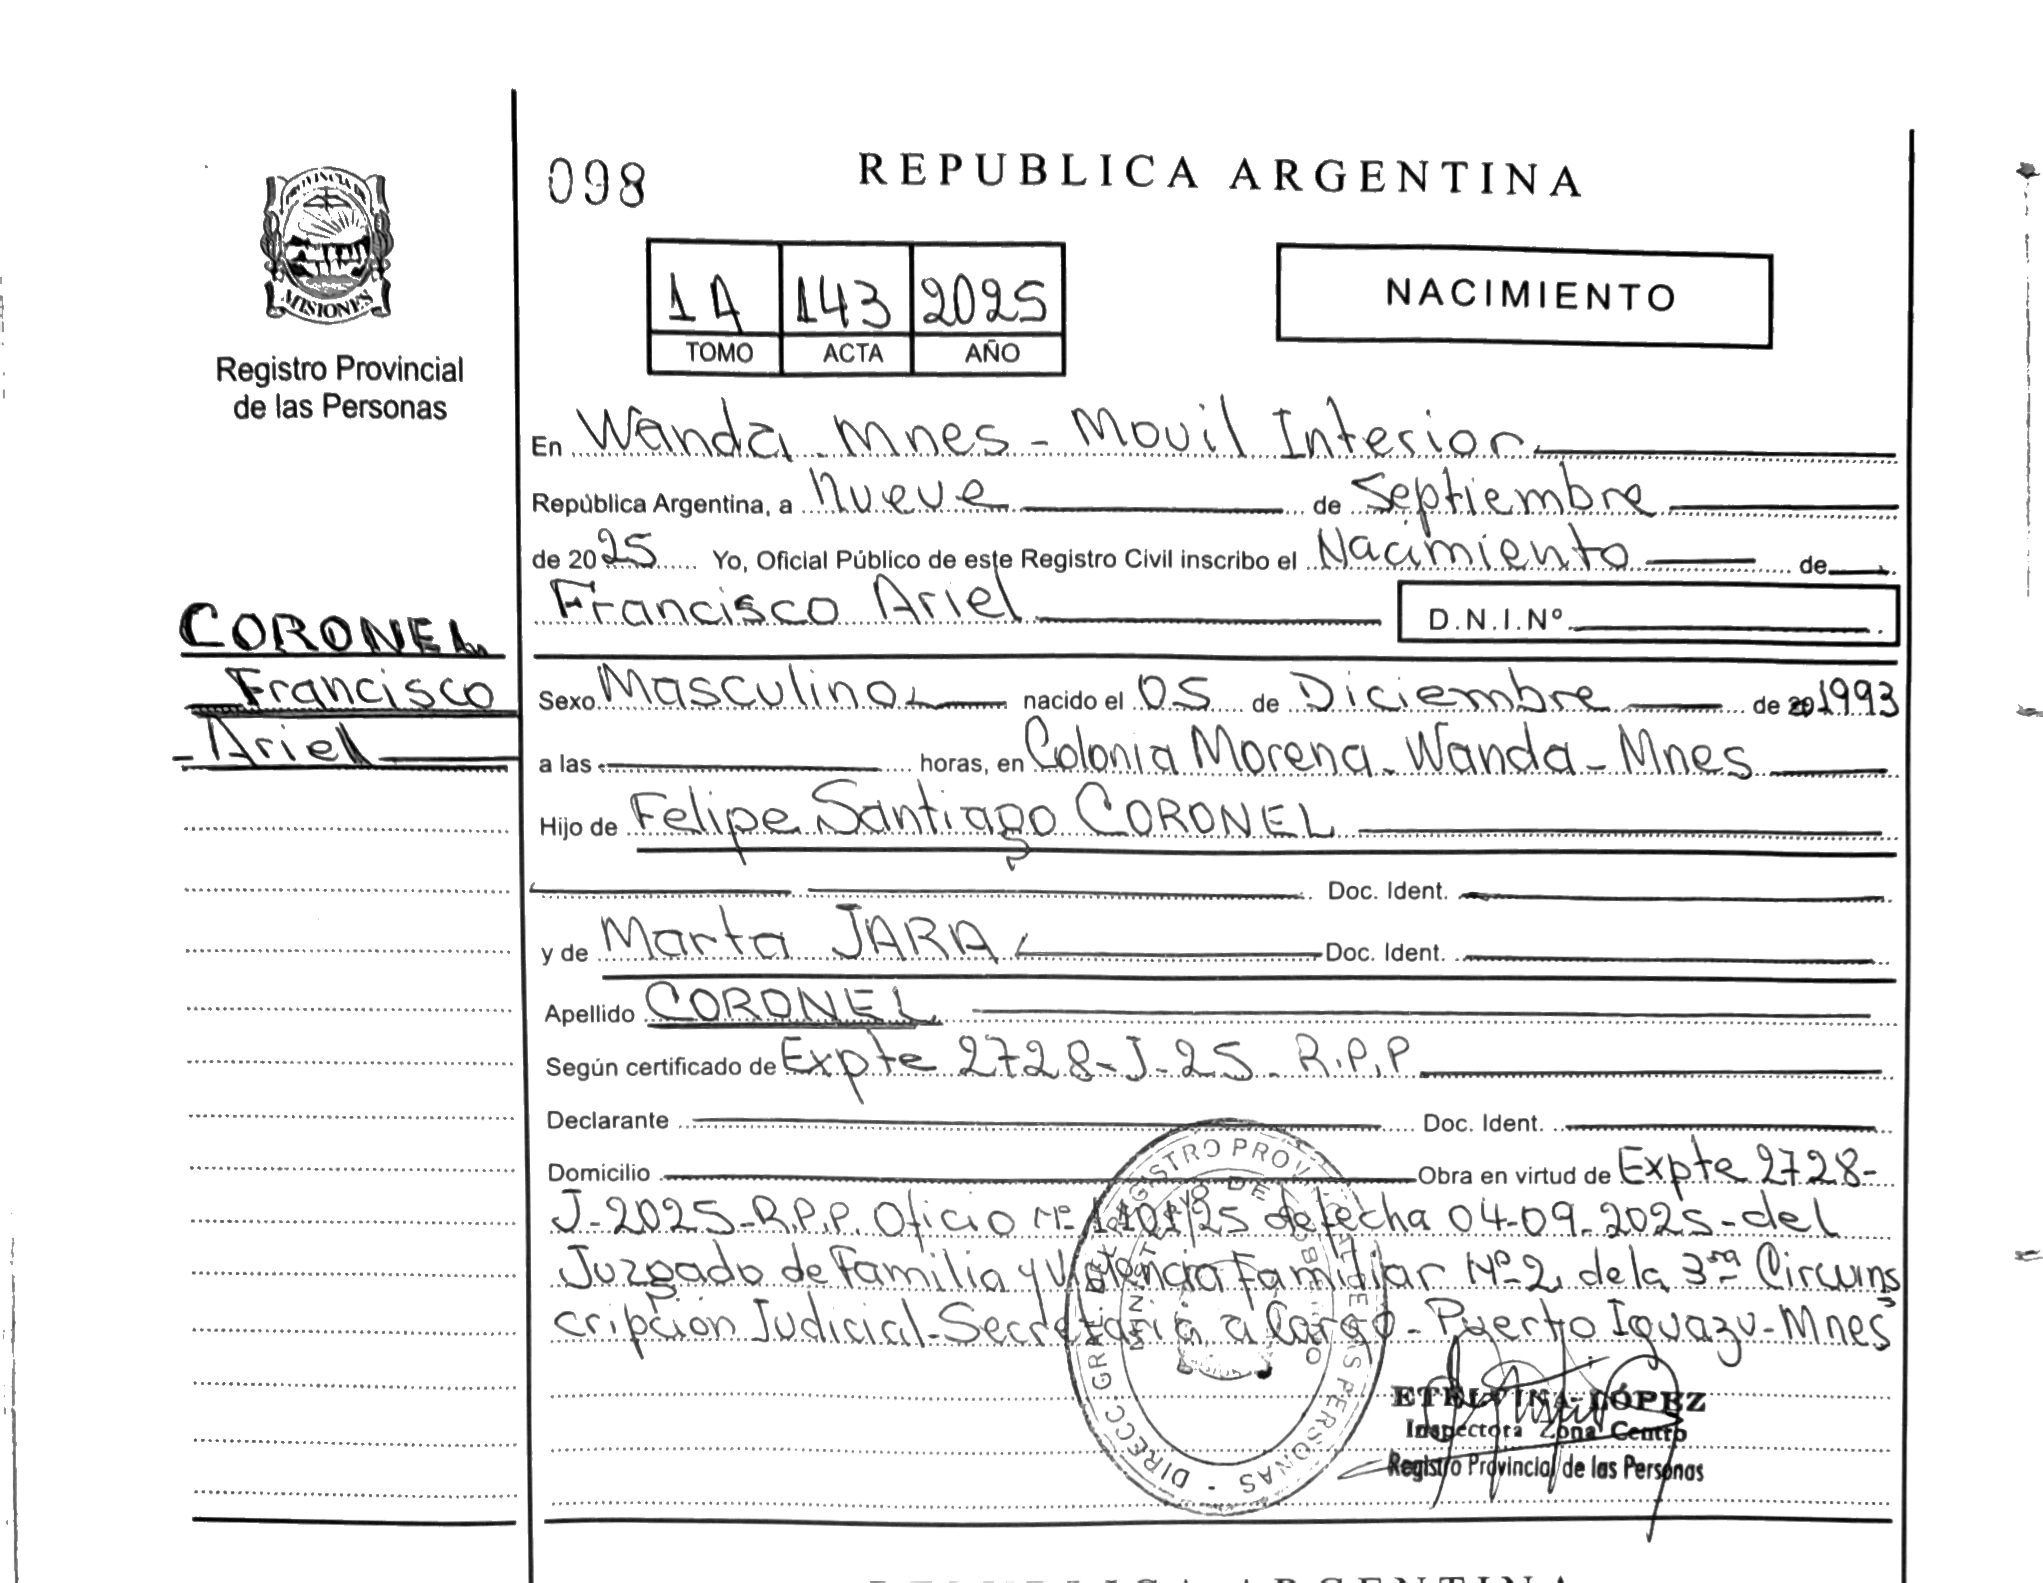 098
REPUBLICA ARGENTINA
PROVINCIA DE
MISIONES
Registro Provincial
de las Personas
1A 143 2025
TOMO ACTA AÑO
NACIMIENTO
En Wanda - Mnes - Movil Interior
República Argentina, a nueve de Septiembre
de 2025 Yo, Oficial Público de este Registro Civil inscribo el Nacimiento de
Francisco Ariel D.N.I.Nº
CORONEL
Francisco
Ariel
Sexo Masculino nacido el 05 de Diciembre de 1993
a las horas, en Colonia Morena - Wanda - Mnes
Hijo de Felipe Santiago CORONEL
Doc. Ident.
y de Marta JARA Doc. Ident.
Apellido CORONEL
Según certificado de Expte 2728-J-25 - R.P.P
Declarante Doc. Ident.
Domicilio Obra en virtud de Expte 2728-
J-2025-R.P.P. Oficio Nº /25 de fecha 04-09-2025-del
Juzgado de Familia y Violencia Familiar Nº 2 de la 3ra Circuns
cripcion Judicial-Secretaria a Cargo - Puerto Iguazu-Mnes
DIRECC. GRAL. DEL REGISTRO PROVINCIAL DE LAS PERSONAS
MINISTERIO DE GOBIERNO
ETELVINA LÓPEZ
Inspectora Zona Centro
Registro Provincial de las Personas
REPUBLICA ARGENTINA